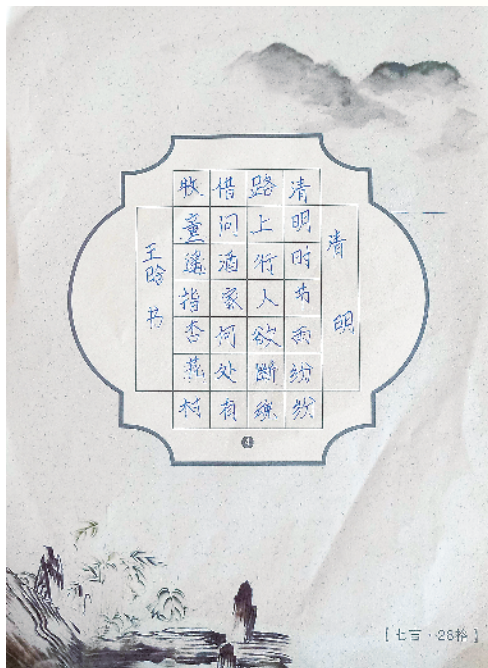 清明
清明时节雨纷纷
路上行人欲断
借问酒家何处有
牧童遥指杏村
王晗 书
[七言·28格]